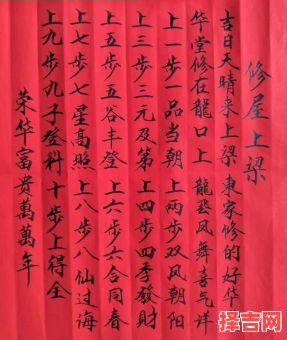 修屋上梁
吉日天晴来上梁 東家修的好华
华堂修在龍口上 龍飛凤舞喜气祥
上一步一品当朝 上两步双凤朝阳
上三步三元及第 上四步四季發財
上五步五谷丰登 上六步六合同春
上七步七星高照 上八步八仙过海
上九步九子登科 十步上得全
荣华富貴萬萬年
择吉网
zejiwang.com